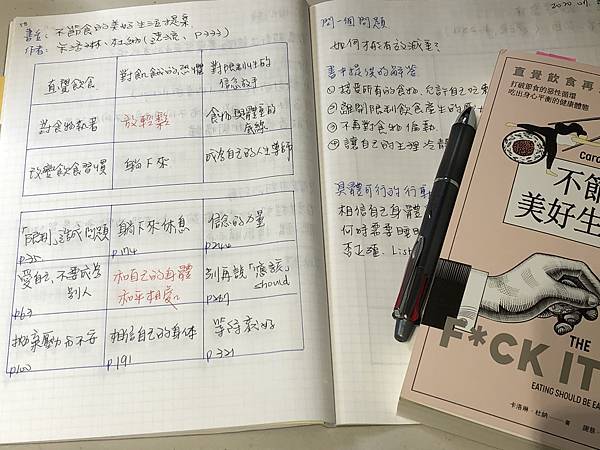 書名：不節食的美好生活提案
作者：卡洛琳．杜納
直覺飲食
對飢餓的恐懼
對限制性的
信念放手
對食物執著
放輕鬆
食物與體重的
底線
改變飲食習慣
躺下來
成為自己的人生導師
「限制」造成問題
躺下來休息
p174
信念的力量
愛自己，不要成為
別人
p63
和自己的身體
和平相處
別再說「應該」
should
p267
拋棄壓力和不安
p100
相信自己的身体
p191
等待就好
p321
問一個問題
如何才有效減重？
書中提供的解答
① 接受所有的食物，允許自己吃
② 離開限制飲食產生的
③ 不再對食物偏執
④ 讓自己的生理
具體可行的行動
相信自己身體
何時需要睡眠
直覺飲食再
打破節食的惡性循環
吃出身心平衡的健康體態
Caro
不節
美好生
THE
F*CK IT
EATING SHOULD BE EA
卡洛琳．杜納 著